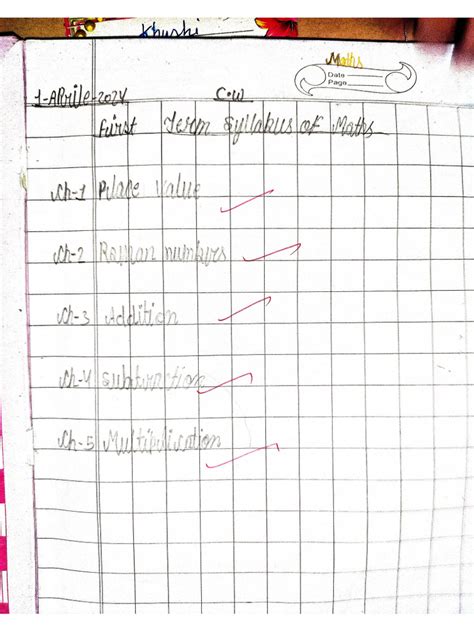 Khushi
Maths
Date
Page
1-Aprile-2024 C.W
First Term Syllabus of Maths
Ch-1 Place Value
Ch-2 Roman numbers
Ch-3 Addition
Ch-4 Subtraction
Ch-5 Multiplication